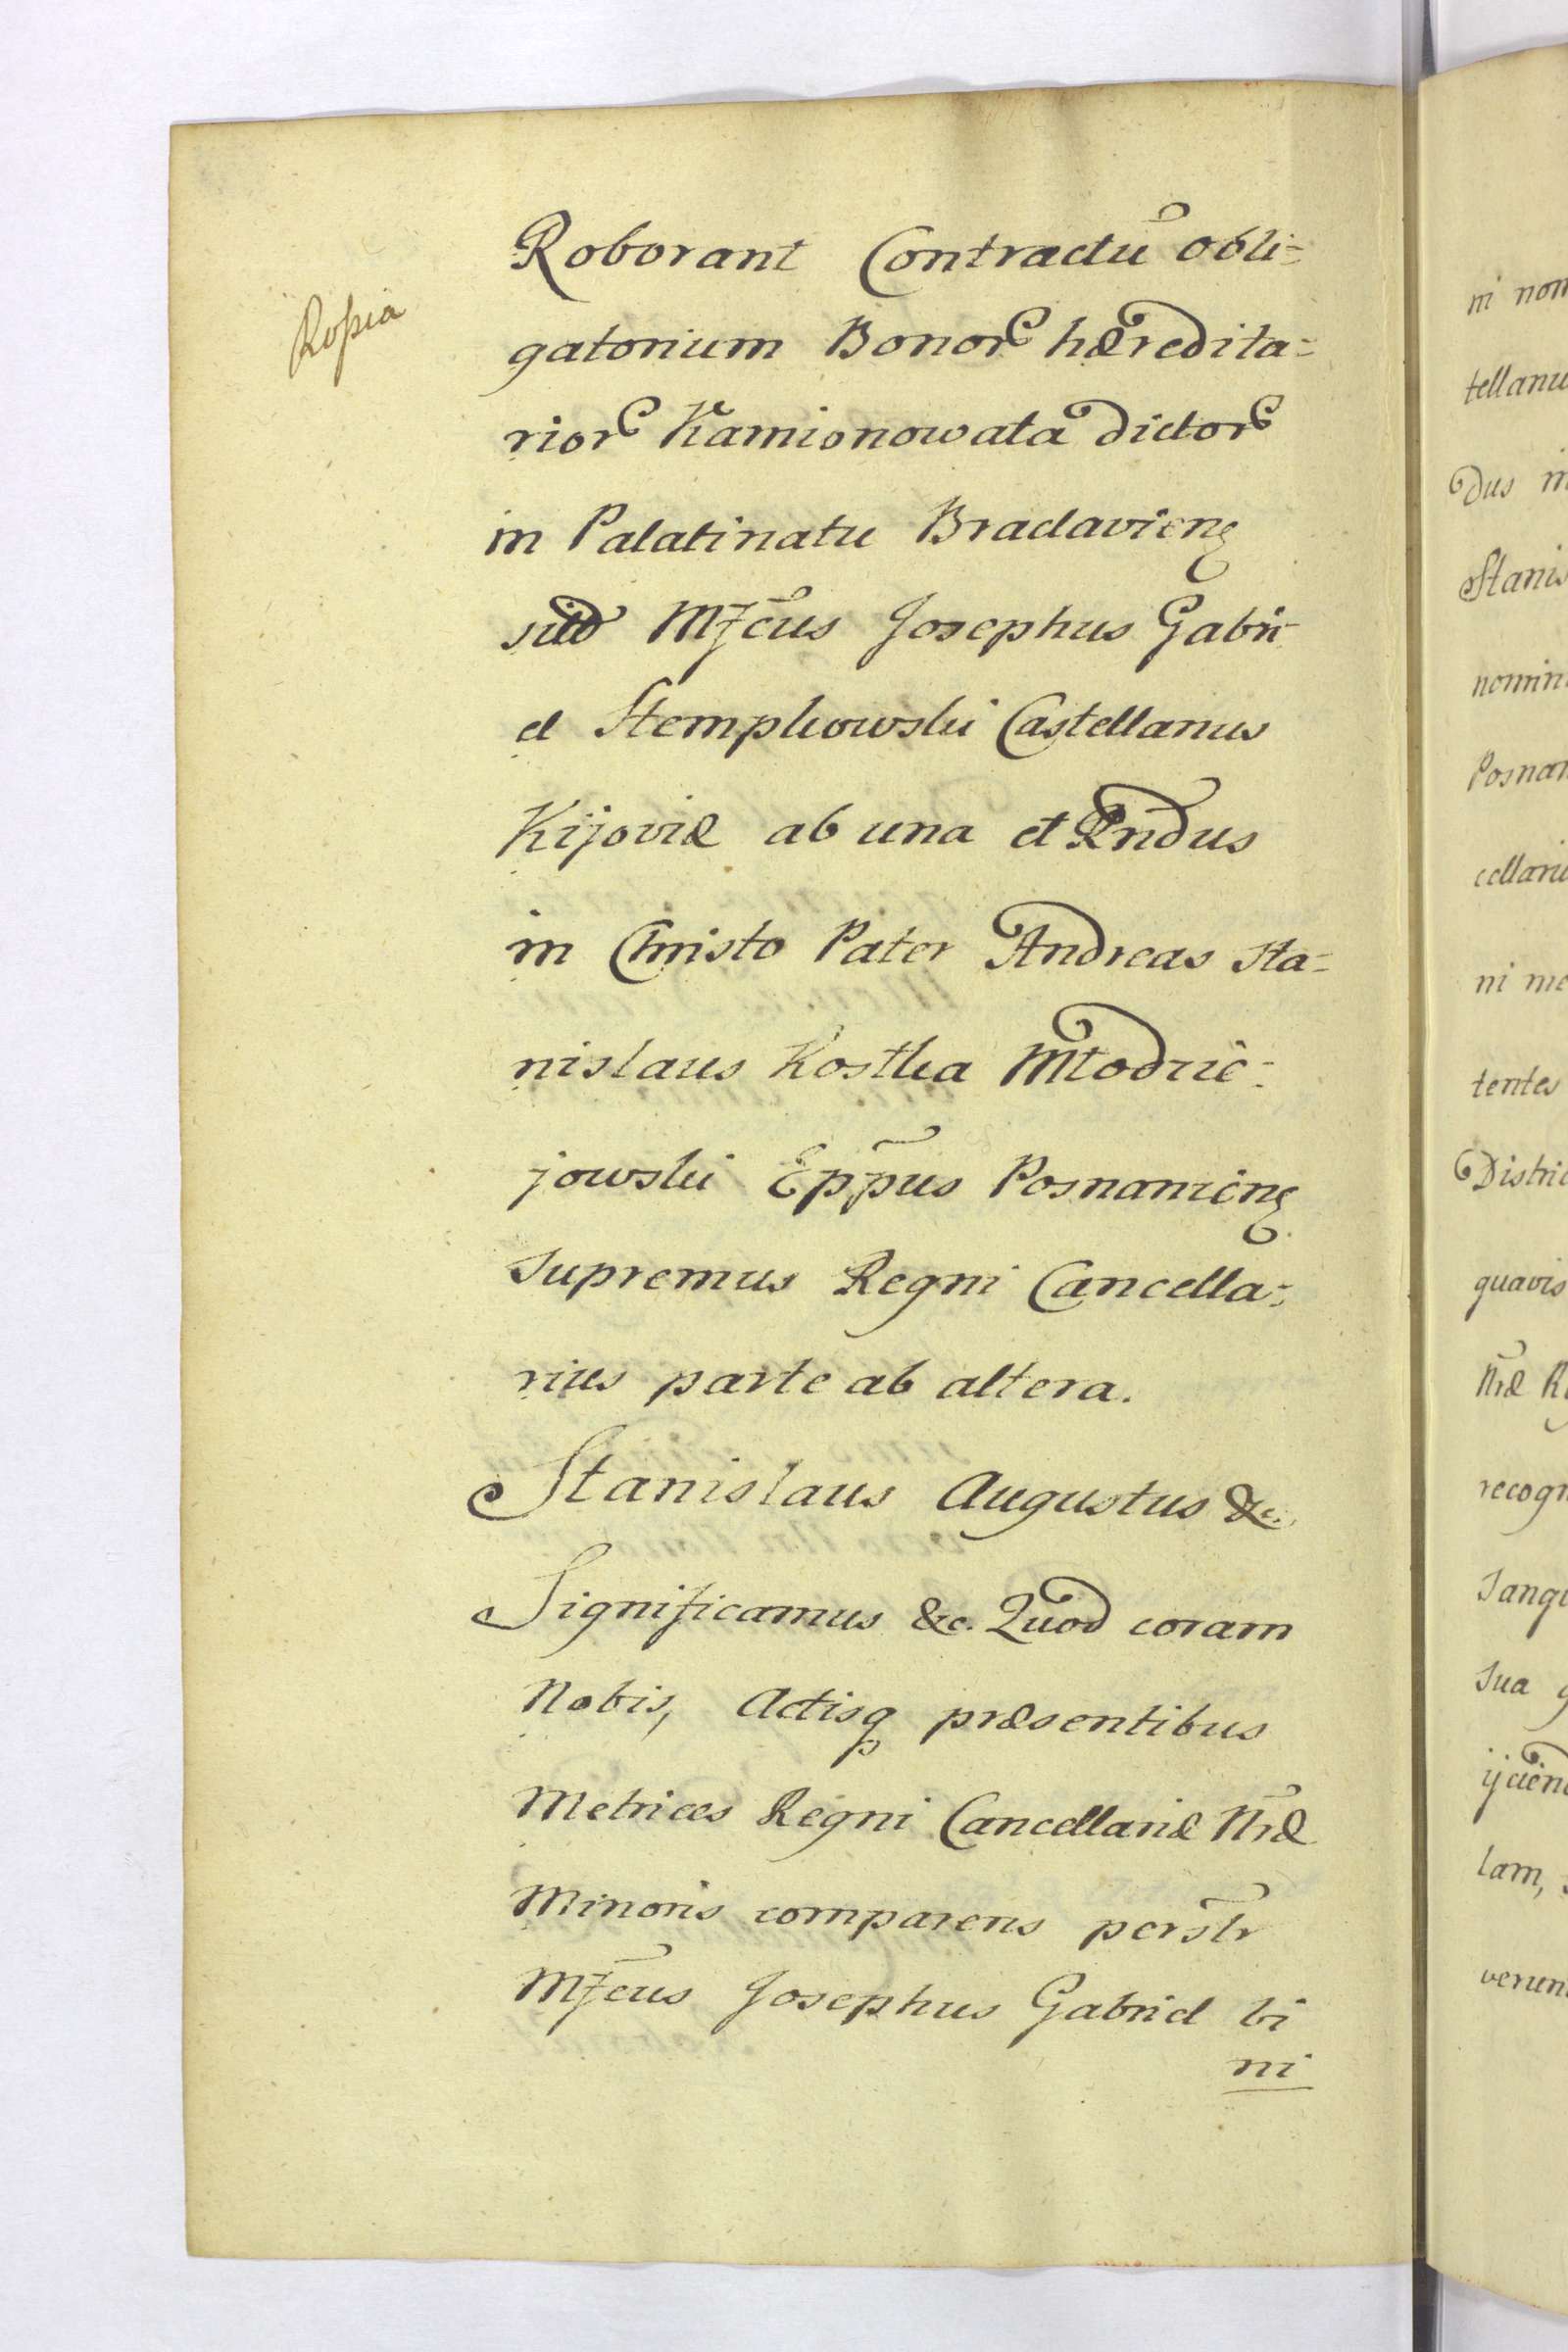 Rossia
Roborant Contractū obli=
gatorium Bonor hæredita=
rior Kamionowata dictor
in Palatinatu Braclavien
sito Mfcus Josephus Gabri-
el Stempkowski Castellanus
Kijoviæ ab una et Rndus
in Christo Pater Andreas Sta=
nislaus Kostka Młodzie=
jowski Eppus Posnanien
Supremus Regni Cancella=
rius parte ab altera.
Stanislaus Augustus &c.
Significamus &c. Quod coram
Nobis, Actisq præsentibus
Metrices Regni Cancellariæ Nræ
Minoris comparens perslr
Mfcus Josephus Gabriel bi
ni
ni nom
tellanu
dus in
Stanis
nomin
Posnan
cellariu
ni me
tentes
Distric
quavis
Nræ R
recogn
Sangu
Sua q
ijcien
lam,
verun